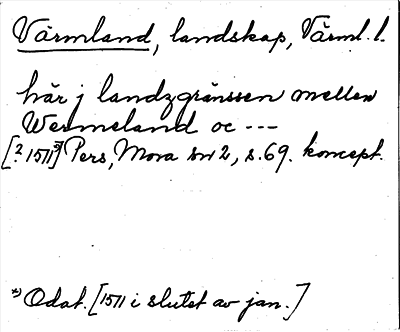 Värmland, landskap, Värml. l.
här j landzgränssen mellen
Wermeland oc ---
[? 1511*)] Pers, Mora sn 2, s. 69. koncept.
*) Odat. [1511 i slutet av jan.]